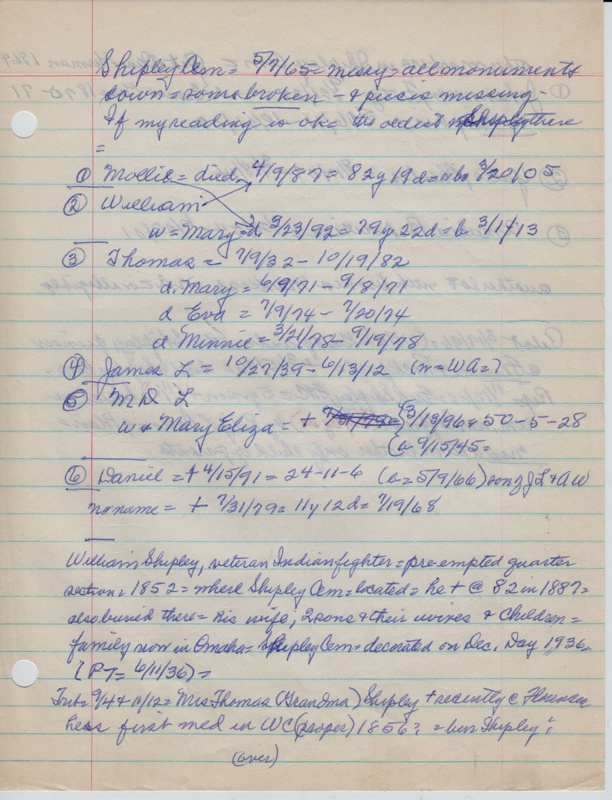 Shipley Cem = 5/7/65 = messy = all monuments
down = some broken - & pieces missing -
If my reading is ok = the oldest Shipley there
=
① Mollie = died 4/9/87 = 82y 19d = b 3/20/05
② William
w = Mary = d 3/23/92 = 79y 22d = b 3/1/13
③ Thomas = 7/9/32 - 10/19/82
d. Mary = 6/9/71 - 9/8/71
d Eva = 7/9/74 - 7/20/74
d. Minnie = 3/21/78 - 9/19/78
④ James L = 10/27/39 - 6/13/12 (w = WA = ?
⑤ M D L
w & Mary Eliza = + {3/13/96 = 50-5-28
(b 9/15/45 =
⑥ Daniel = + 4/15/91 = 24-11-6 (b = 5/9/66) son of J L & A W
no name = + 7/31/79 = 11y 12d = 7/19/68
William Shipley, veteran Indian fighter = pre-empted quarter
section = 1852 = where Shipley Cem = located = he + @ 82 in 1887 =
also buried there = his wife, 2 sons & their wives & children =
family now in Omaha = Shipley Cem = decorated on Dec. Day 1936.
(PT = 6/11/36) =
Trib = 9/4 & 11/12 = Mrs Thomas (Grandma) Shipley + recently @ Florence
first in WC (proper) 1856? = Shipley?
(over)